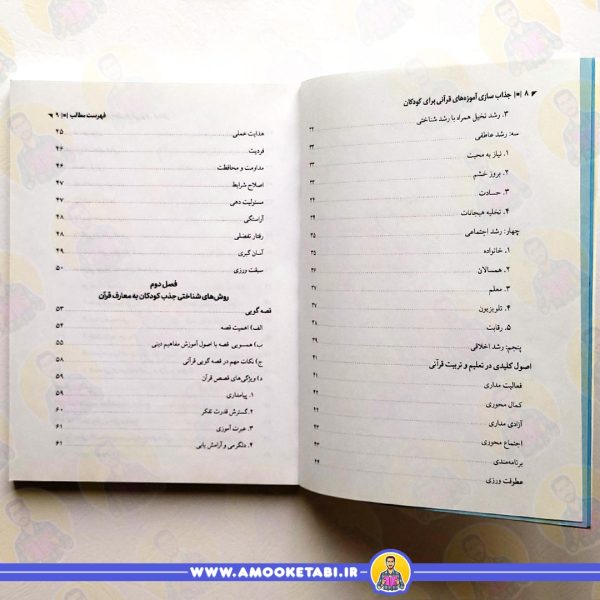 ۸ |■| جذاب سازی آموزه‌های قرآنی برای کودکان
۳. رشد تخیل همراه با رشد شناختی ۳۲
سه: رشد عاطفی ۳۲
۱. نیاز به محبت ۳۳
۲. بروز خشم ۳۳
۳. حسادت ۳۴
۴. تخلیه هیجانات ۳۴
چهار: رشد اجتماعی ۳۵
۱. خانواده ۳۵
۲. همسالان
۳. معلم
۴. تلویزیون ۳۷
۵. رقابت
پنجم: رشد اخلاقی
اصول کلیدی در تعلیم و تربیت قرآنی ۴۱
فعالیت مداری ۴۱
کمال محوری
آزادی مداری
اجتماع محوری
برنامه‌مندی
عطوفت ورزی ۴۴
فهرست مطالب |■| ۹
هدایت عملی ۴۵
فردیت ۴۶
مداومت و محافظت ۴۶
اصلاح شرایط ۴۷
مسئولیت دهی ۴۷
آراستگی ۴۸
رفتار تفضلی ۴۸
آسان گیری ۴۹
سبقت ورزی ۵۰
فصل دوم
روش‌های شناختی جذب کودکان به معارف قرآن
قصه گویی ۵۳
الف) اهمیت قصه ۵۴
ب) همسویی قصه با اصول آموزش مفاهیم دینی ۵۵
ج) نکات مهم در قصه گویی قرآنی ۵۸
د) ویژگی‌های قصص قرآن ۵۹
۱. پیامداری ۵۹
۲. گسترش قدرت تفکر ۶۰
۳. عبرت آموزی ۶۱
۴. دلگرمی و آرامش یابی ۶۱
WWW.AMOOKETABI.IR